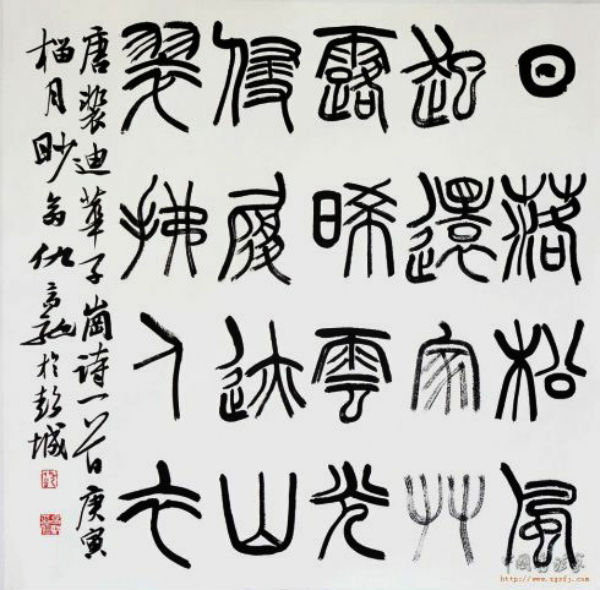 日落松風
起還家艸
露晞雲光
侵履迹山
翠拂人衣
唐裴迪華子崗詩一首庚寅
榴月仇高馳於彭城
http://www.zgsfj.com